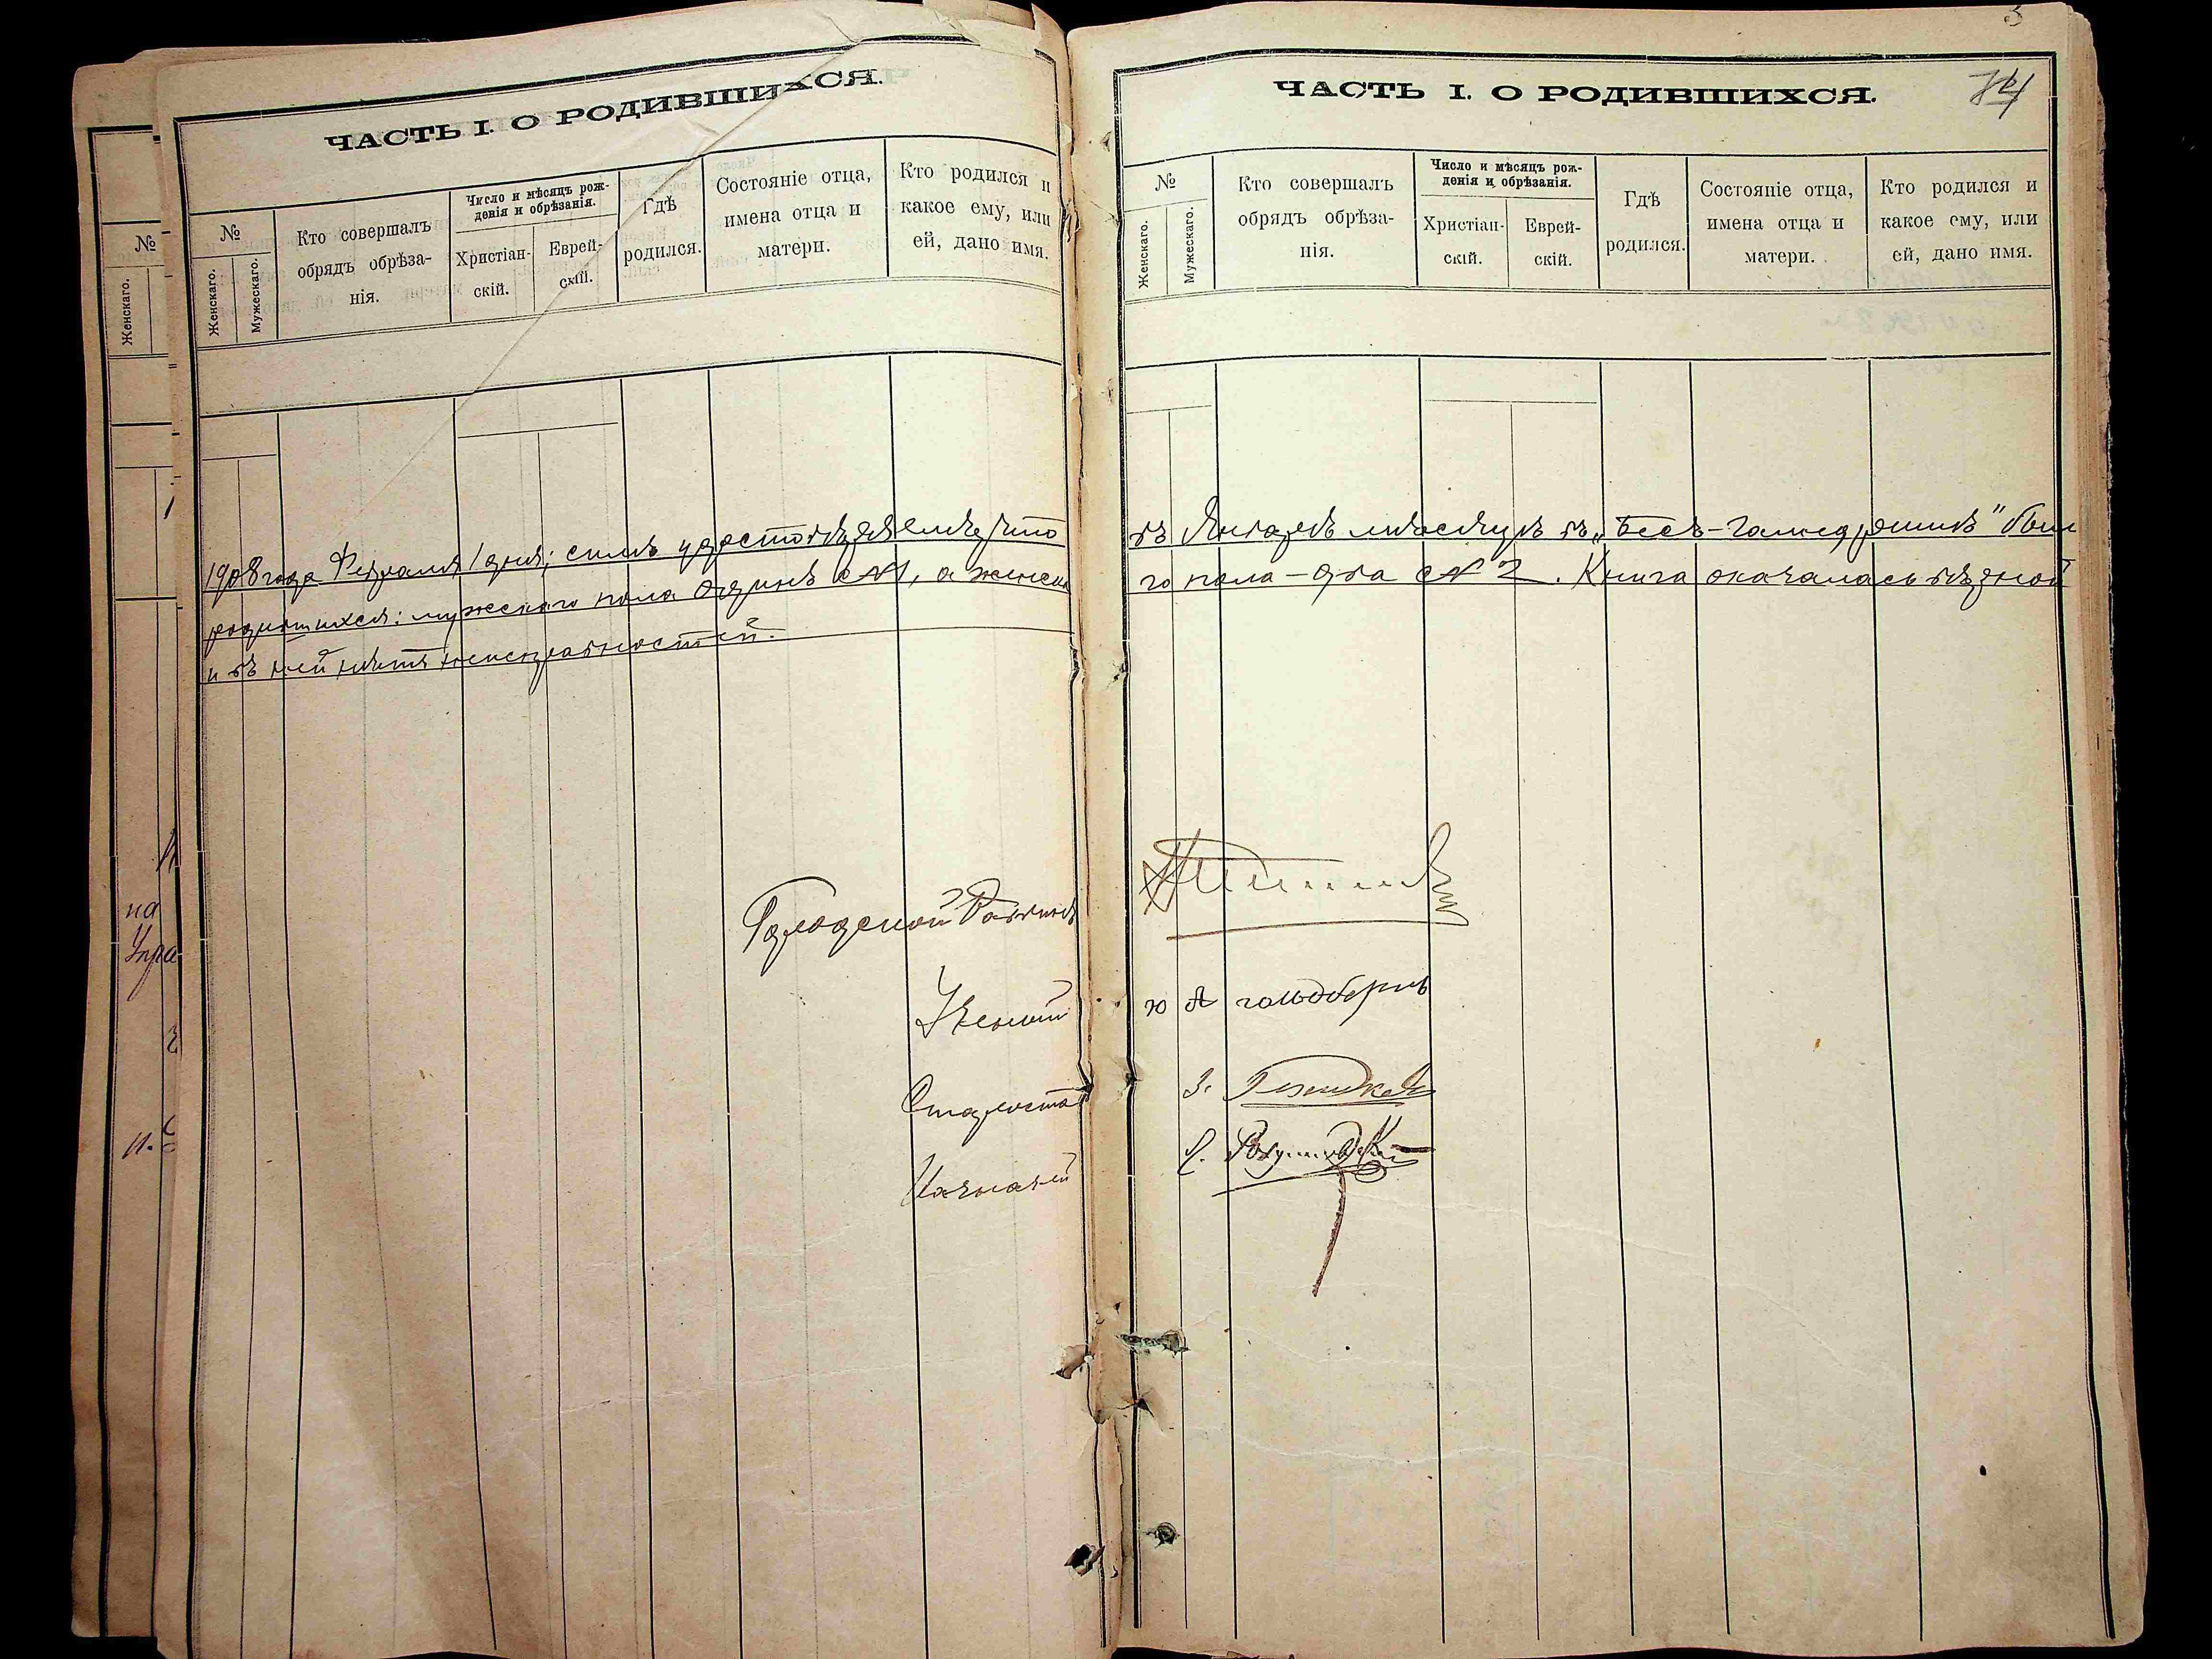 ЧАСТЬ I. О РОДИВШИХСЯ.
№
Женскаго.
Мужескаго.
Кто совершалъ
обрядъ обрѣза-
нія.
Число и мѣсяцъ рож-
денія и обрѣзанія.
Христіан-
скій.
Еврей-
скій.
Гдѣ
родился.
Состояніе отца,
имена отца и
матери.
Кто родился и
какое ему, или
ей, дано имя.
1908 года Февраля 1 дня; симъ удостовѣряемъ, что
родившихся: мужскаго пола одинъ №1, а женска
и въ ней нѣтъ неисправностей.
Городской Раввинъ
Ученый
Староста
Казначей
№
Женскаго.
на
Упра
3
ЧАСТЬ I. О РОДИВШИХСЯ.
74
№
Женскаго.
Мужескаго.
Кто совершалъ
обрядъ обрѣза-
нія.
Число и мѣсяцъ рож-
денія и обрѣзанія.
Христіан-
скій.
Еврей-
скій.
Гдѣ
родился.
Состояніе отца,
имена отца и
матери.
Кто родился и
какое ему, или
ей, дано имя.
въ Январѣ мѣсяцѣ въ „Бесъ-Гамедрашѣ" было
го пола - два № 2. Книга оказалась вѣрной
гольдбергъ
З.